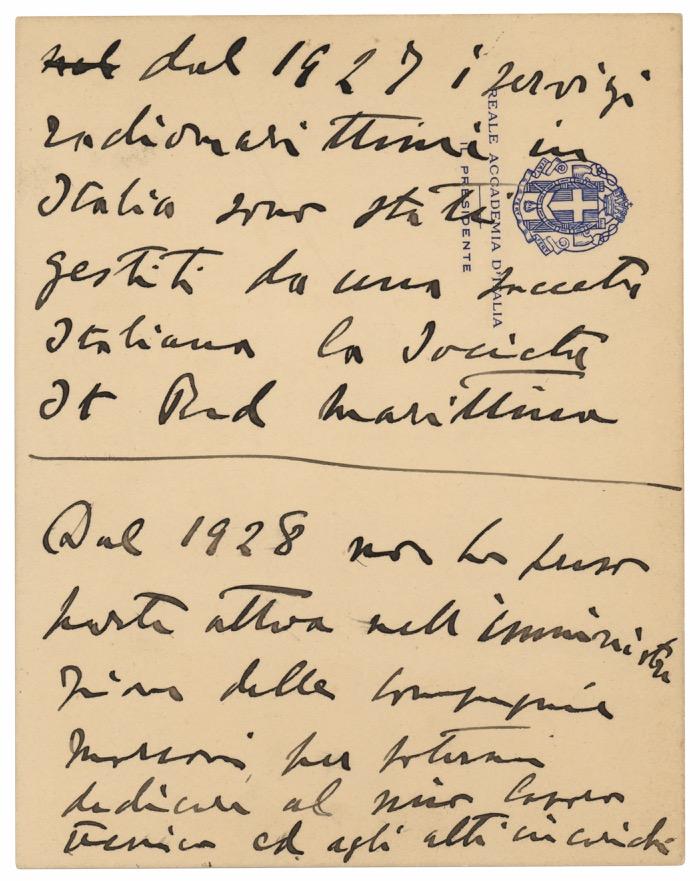 nel dal 1927 i servizi
radiomarittimi in
Italia sono stati
gestiti da una società
Italiana la Società
It Rad Marittima
Dal 1928 non ho preso
parte attiva nell'amministra
zione delle compagnie
Marconi, per potermi
dedicare al mio lavoro
tecnico ed agli altri incarichi
REALE ACCADEMIA D'ITALIA
IL PRESIDENTE